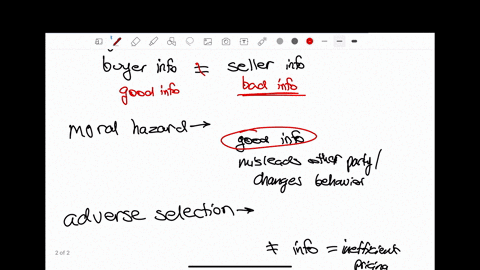 buyer info ≠ seller info
good info bad info
moral hazard →
good info
misleads other party/
changes behavior
adverse selection →
≠ info = inefficient
pricing
2 of 2